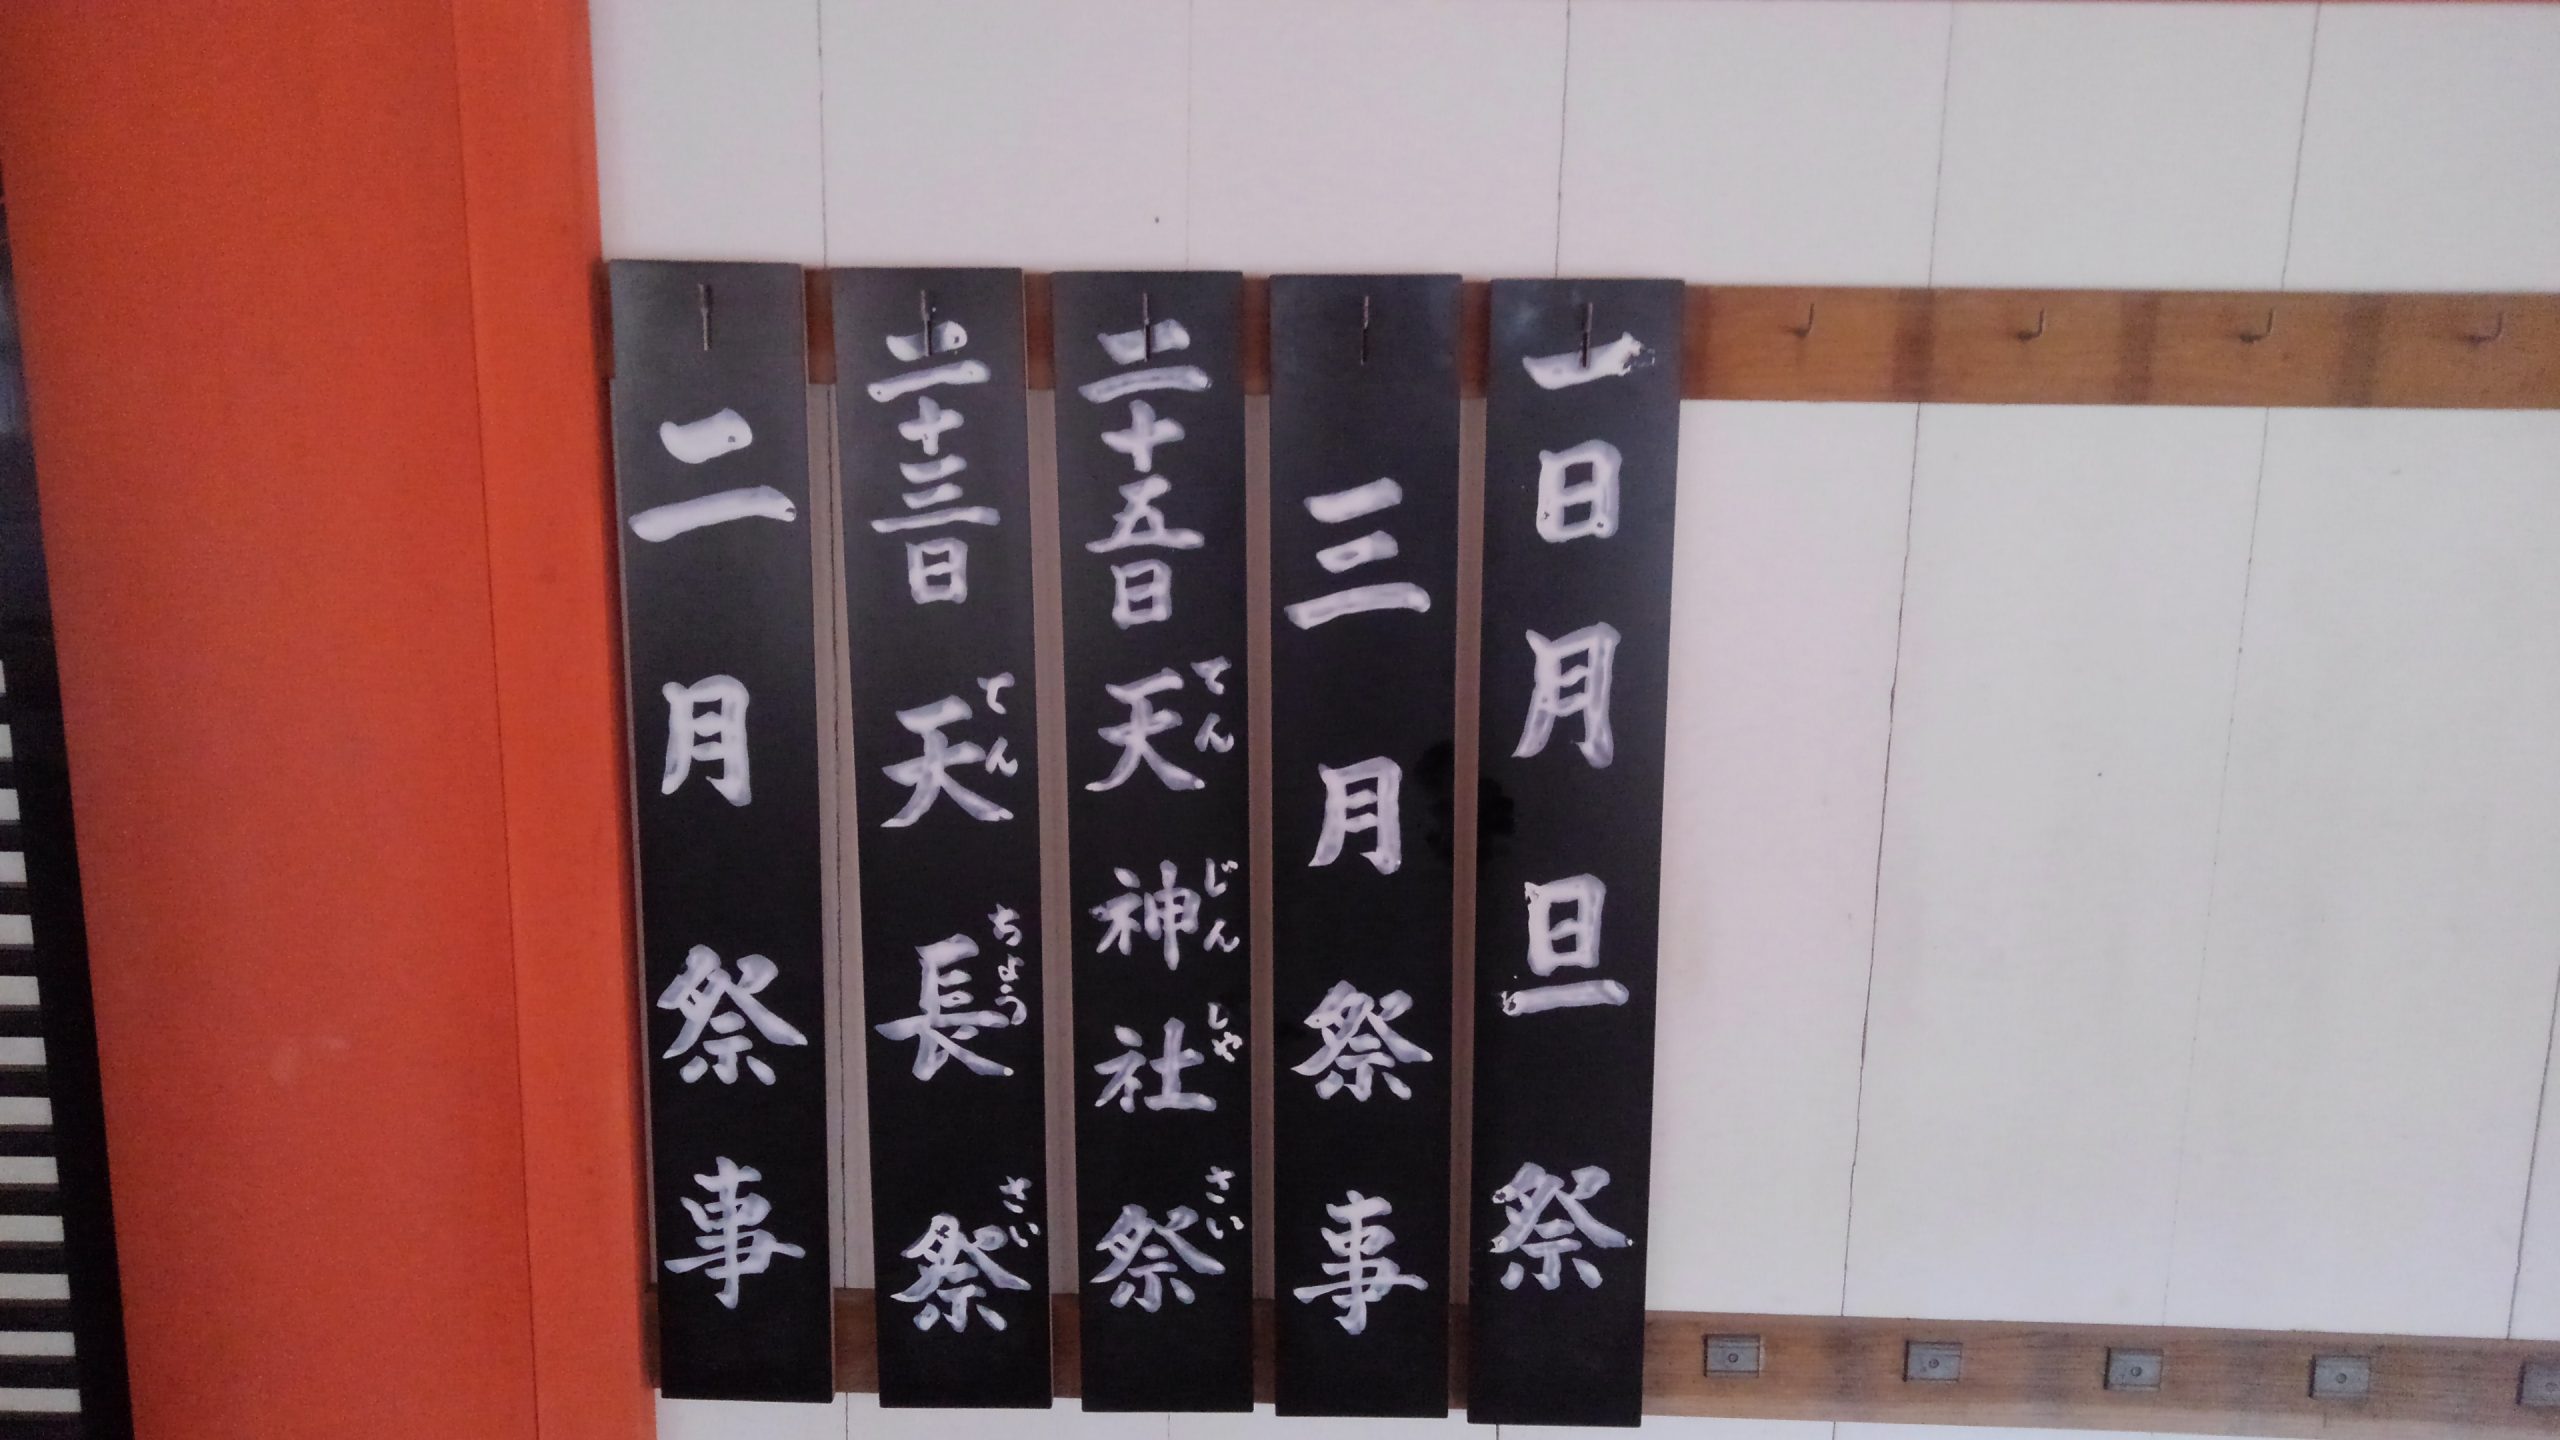 二月祭事
二十三日 天長祭
てんちょうさい
二十五日 天神社祭
てんじんしゃさい
三月祭事
一日 月旦祭